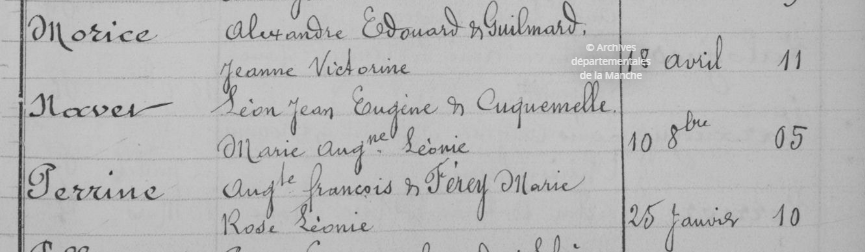 Morice Alexandre Edouard & Guilmard.
Jeanne Victorine 18 avril 11
© Archives
départementales
de la Manche
Naver Léon Jean Eugène & Cuquemelle.
Marie Augne Léonie 10 8bre 05
Perrine Augte françois & Férey Marie
Rose Léonie 25 Janvier 10